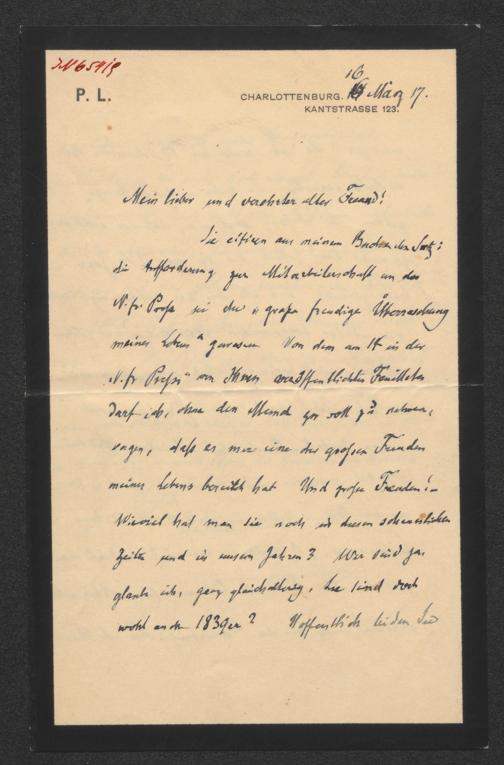 P. L.
CHARLOTTENBURG. 16 März 17.
KANTSTRASSE 123.
Mein lieber und verehrter alter Freund!
Sie citiren aus meinem Buche den Satz:
die Aufforderung zur Mitarbeiterschaft an der
N. fr. Presse sei die "große freudige Überraschung
meines Lebens" gewesen. Von dem am 14 in der
"N. fr. Presse" von Ihnen veröffentlichten Feuilleton
darf ich, ohne den Mund zu voll zu nehmen,
sagen, daß es mir eine der großen Freuden
meines Lebens bereitet hat. Und große Freuden! –
Wieviel hat man sie noch in diesen scheusslichen
Zeiten und in unsern Jahren? Wir sind ja,
glaube ich, ganz gleichaltrig, Sie sind doch
wohl auch 1839er? Hoffentlich leiden Sie